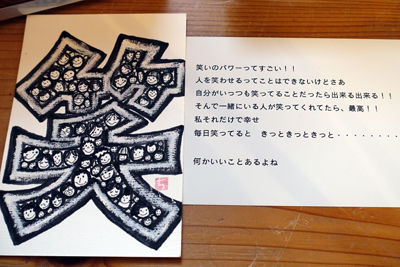 笑
笑いのパワーってすごい！！
人を笑わせるってことはできないけどさあ
自分がいっつも笑ってることだったら出来る出来る！！
そんで一緒にいる人が笑ってくれてたら、最高！！
私それだけで幸せ
毎日笑ってると　きっときっときっと・・・・・・・・
何かいいことあるよね